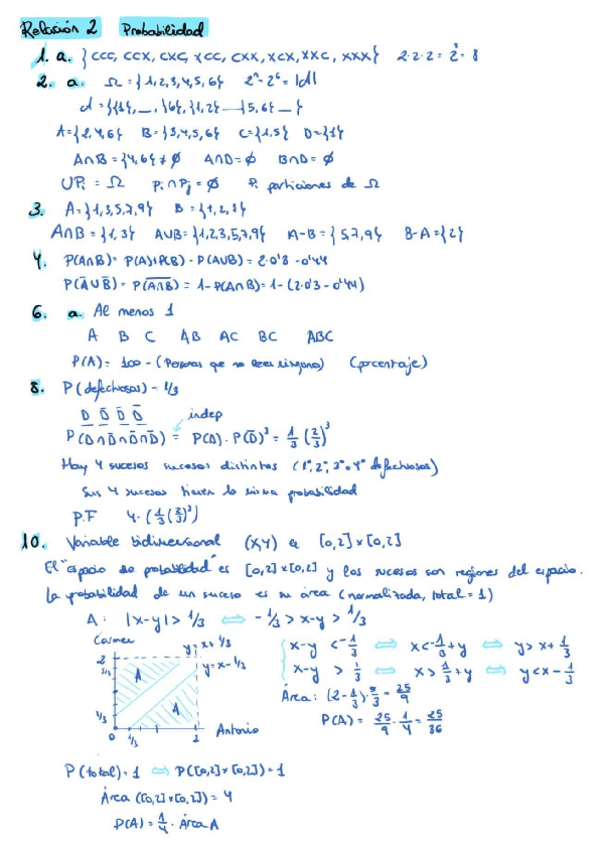 Relación 2 Probabilidad
1. a. {CCC, CCX, CXC, XCC, CXX, XCX, XXC, XXX} 2·2·2 = 2³ = 8
2. a. Ω = {1,2,3,4,5,6} 2ⁿ = 2⁶ = |A|
A = {{1}, _, {6}, {1,2} — {5,6} — }
A = {2,4,6} B = {3,4,5,6} C = {1,5} D = {1}
A∩B = {4,6} ≠ ∅ A∩D = ∅ B∩D = ∅
UPᵢ = Ω Pᵢ ∩ Pⱼ = ∅ Pᵢ particiones de Ω
3. A = {1,3,5,7,9} B = {1,2,3}
A∩B = {1,3} A∪B = {1,2,3,5,7,9} A-B = {5,7,9} B-A = {2}
4. P(A∩B) = P(A)+P(B) - P(A∪B) = 2·0'8 - 0'44
P(A̅∪B̅) = P(A̅∩̅B̅) = 1 - P(A∩B) = 1-(2·0'3 - 0'44)
6. a. Al menos 1
A B C AB AC BC ABC
P(A) = 100 - (Personas que no leen ninguno) (porcentaje)
8. P(defectuosos) = 1/3
D D̅ D̅ D̅ indep
P(D∩D̅∩D̅∩D̅) = P(D)·P(D̅)³ = 1/3 (2/3)³
Hay 4 sucesos sucesos distintos (1º, 2º, 3º o 4º defectuosos)
Sus 4 sucesos tienen la misma probabilidad
P.F 4·(1/3(2/3)³)
10. Variable bidimensional (X,Y) a [0,2]×[0,2]
El "espacio de probabilidad" es [0,2]×[0,2] y los sucesos son regiones del espacio.
La probabilidad de un suceso es su área (normalizada, total = 1)
A: |x-y| > 1/3 ⟺ -1/3 > x-y > 1/3
x-y < -1/3 ⟺ x < -1/3 + y ⟺ y > x + 1/3
x-y > 1/3 ⟺ x > 1/3 + y ⟺ y < x - 1/3
Carmen
y = x + 1/3
y = x - 1/3
2
5/3
A
A
1/3
0 1/3 2 Antonio
Área: (2-1/3)·5/3 = 25/9
P(A) = 25/9 · 1/4 = 25/36
P(total) = 1 ⟺ P([0,2]×[0,2]) = 1
Área ([0,2]×[0,2]) = 4
P(A) = 1/4 · Área A